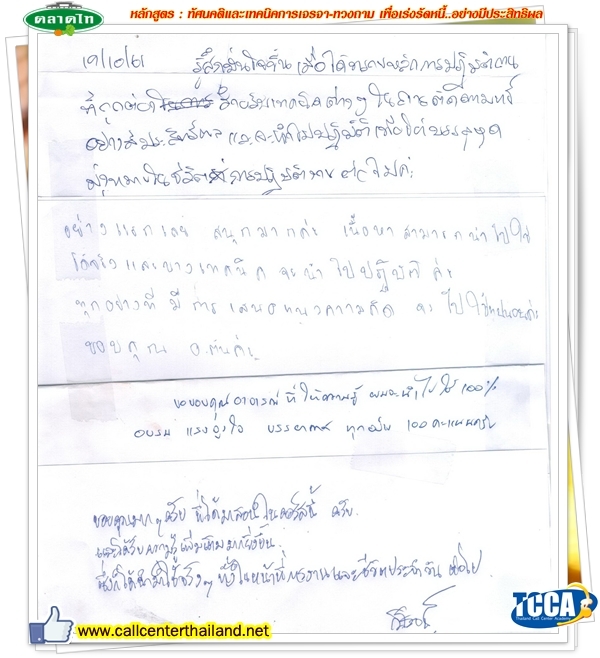 ตลาดไท
หลักสูตร : ทัศนคติและเทคนิคการเจรจา-ทวงถาม เพื่อเร่งรัดหนี้..อย่างมีประสิทธิผล
19/10/61 รู้สึกมั่นใจขึ้น เมื่อได้ การปฏิบัติงาน
ที่ถูกต้อง เทคนิคต่างๆ ในการติดตามหนี้
อย่างมีประสิทธิผล และจะนำไปปฏิบัติ เพื่อให้บรรลุจุด
มุ่งหมายในชีวิต การปฏิบัติงาน ค่ะ
อย่างแรกเลย สนุกมากค่ะ เนื้อหาสามารถนำไปใช้
ได้จริงและบางเทคนิคจะนำไปปฏิบัติค่ะ
ทุกอย่างที่มีการเสนอแนวความคิด จะไปใช้ ค่ะ
ขอบคุณ อ. ค่ะ
ขอขอบคุณอาจารณ์ ที่ให้ความรู้ ผมจะนำไปใช้ 100%
อบรม แรงจูงใจ บรรยากาศ ทุกอย่าง 100 คะแนนครับ
ขอบคุณมากๆครับ ที่ได้มาสอนในคอร์สนี้ ครับ
และได้รับความรู้เพิ่มเติมมากยิ่งขึ้น
ซึ่งก็ได้นำมาใช้จริงๆ ทั้งในหน้าที่การงานและชีวิตประจำวัน ต่อไป
www.callcenterthailand.net
TCCA
Thailand Call Center Academy